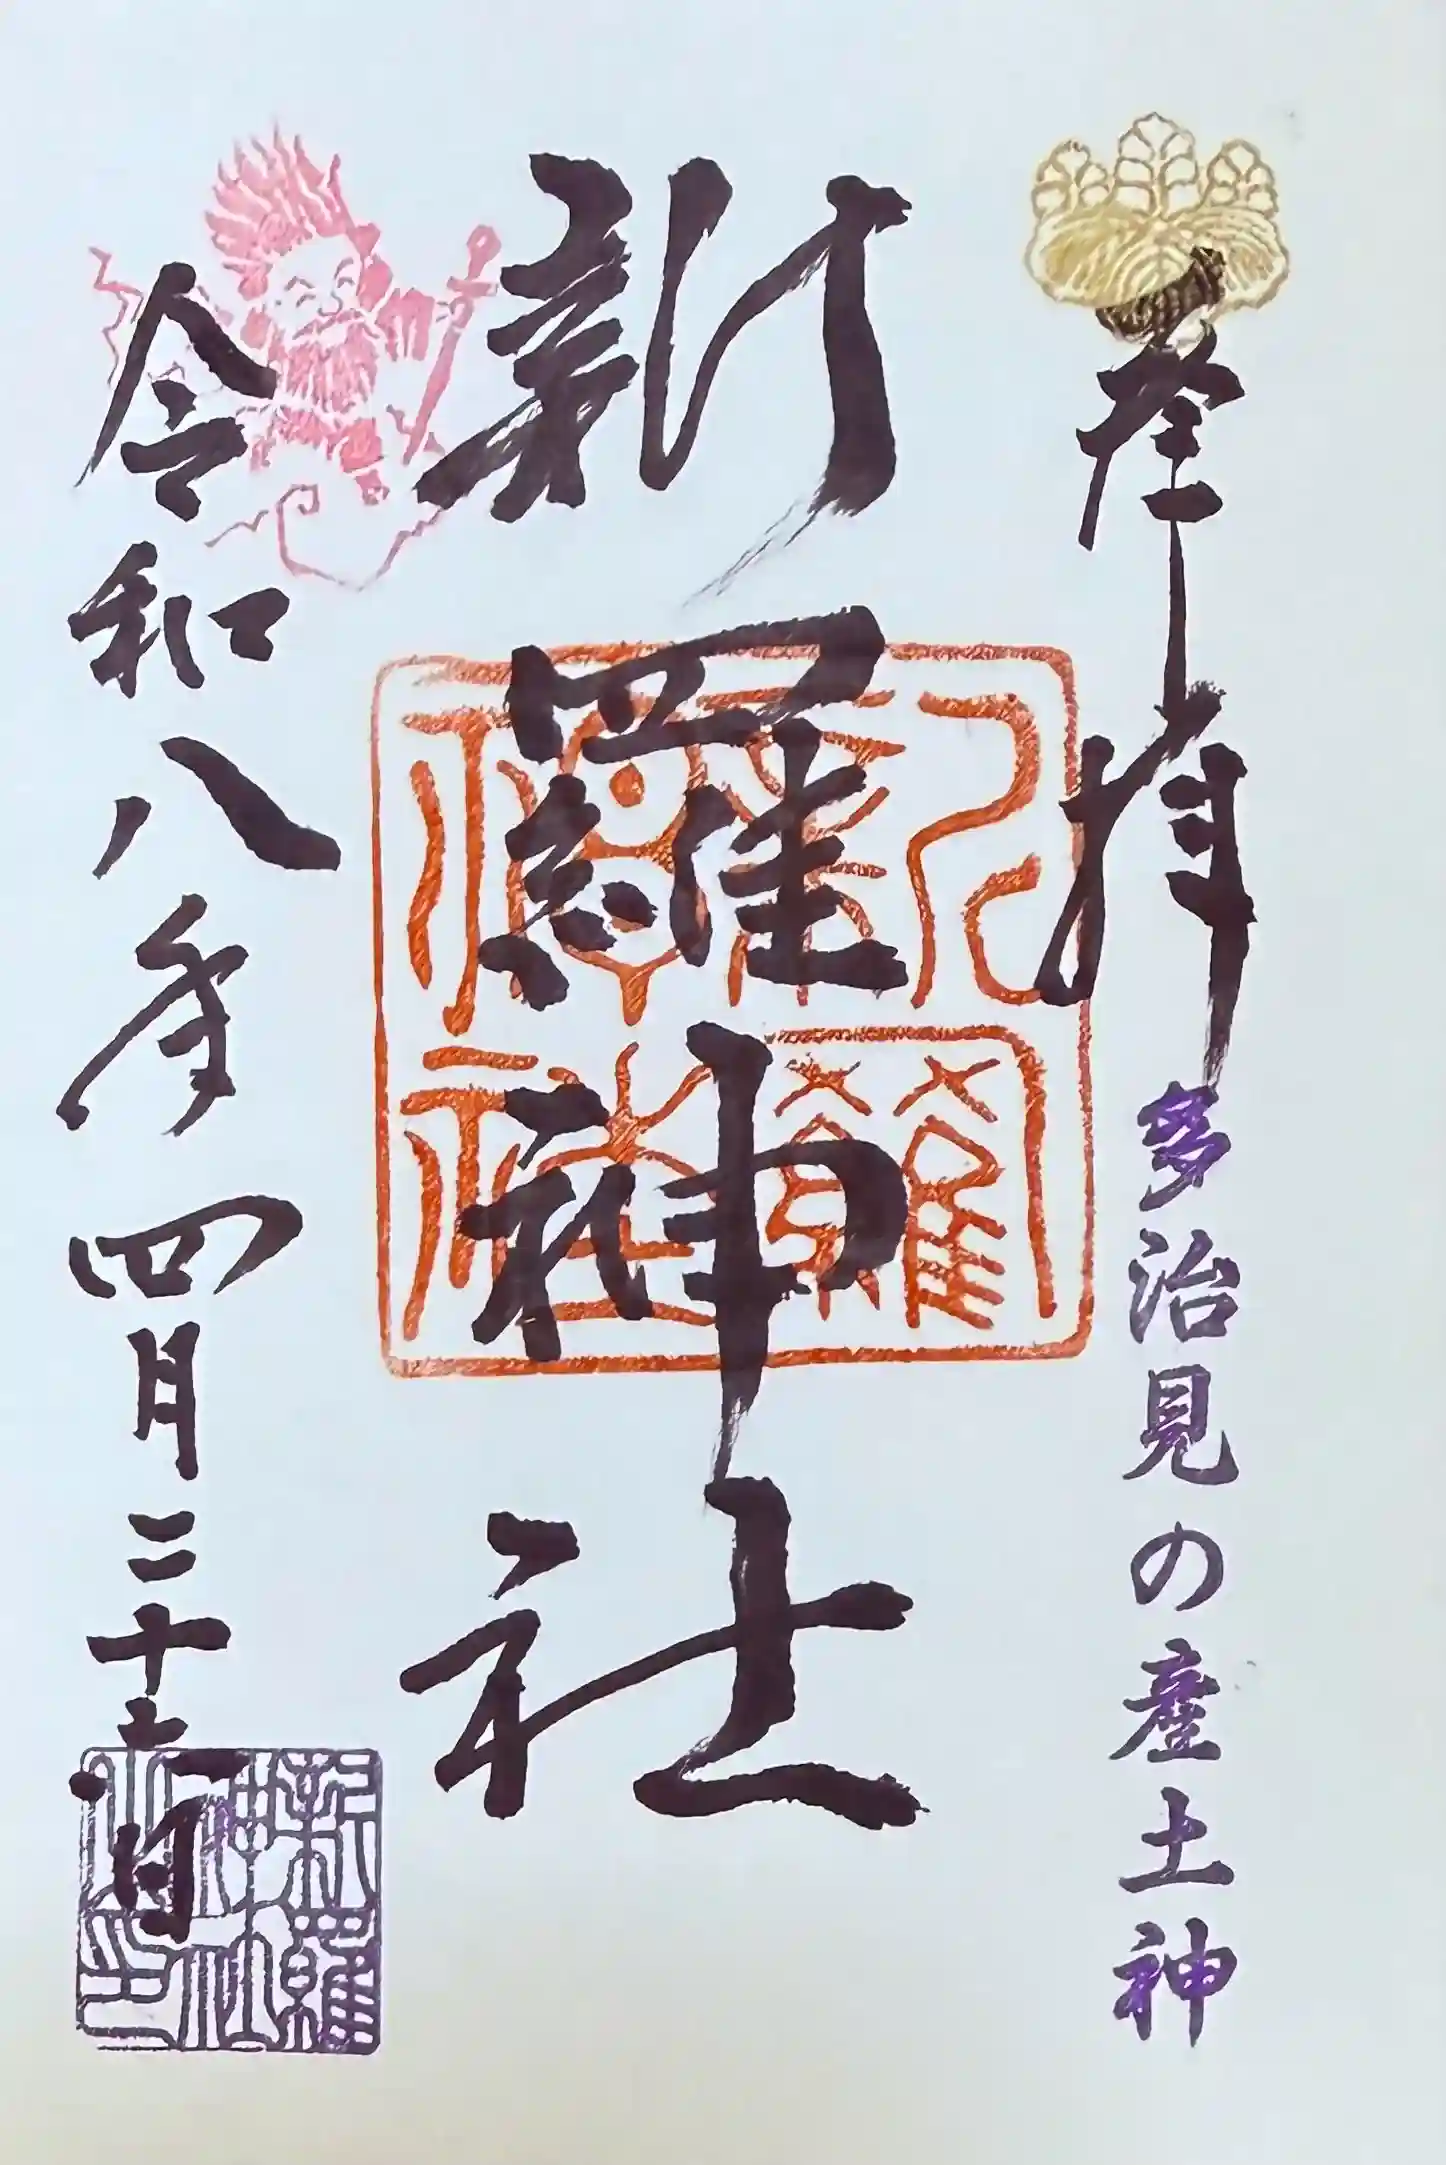 奉拝
多治見の産土神
新羅神社
新羅
神社
令和八年四月二十六日
新羅
神社
之印